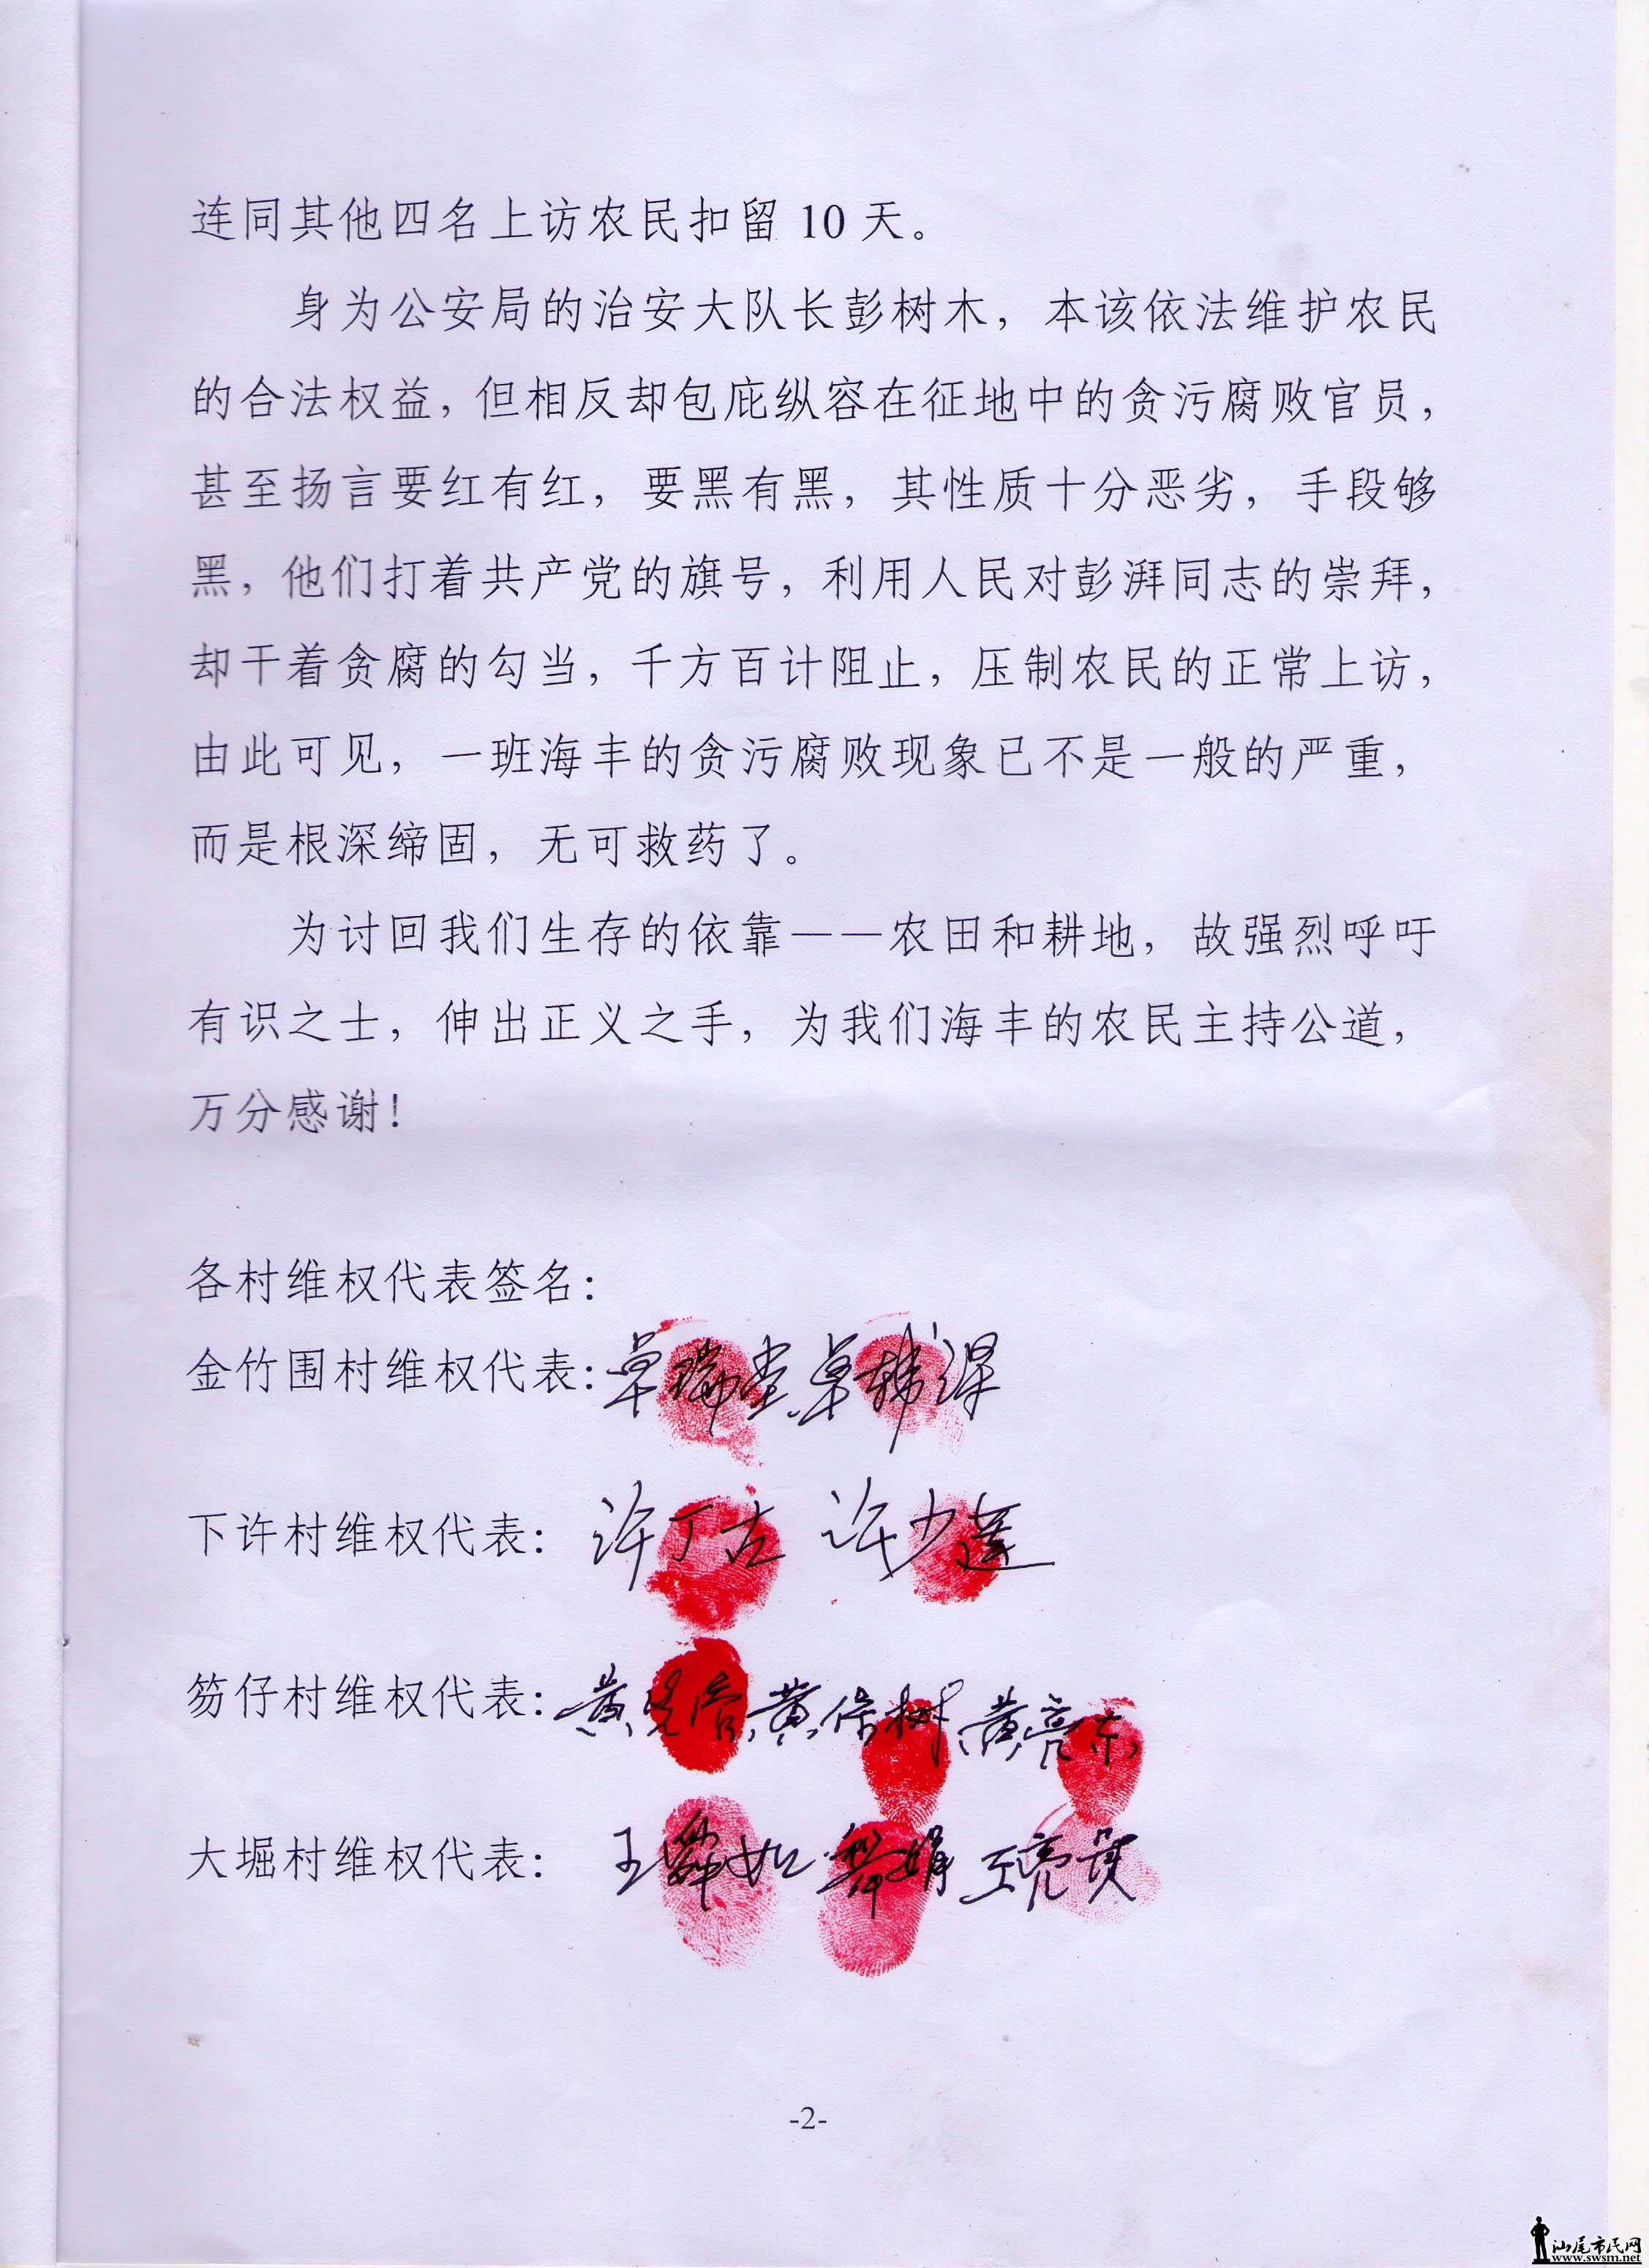 连同其他四名上访农民扣留 10 天。
身为公安局的治安大队长彭树木，本该依法维护农民
的合法权益，但相反却包庇纵容在征地中的贪污腐败官员，
甚至扬言要红有红，要黑有黑，其性质十分恶劣，手段够
黑，他们打着共产党的旗号，利用人民对彭湃同志的崇拜，
却干着贪腐的勾当，千方百计阻止，压制农民的正常上访，
由此可见，一班海丰的贪污腐败现象已不是一般的严重，
而是根深缔固，无可救药了。
为讨回我们生存的依靠——农田和耕地，故强烈呼吁
有识之士，伸出正义之手，为我们海丰的农民主持公道，
万分感谢！
各村维权代表签名：
金竹围村维权代表：卓瑞
下许村维权代表：许丁古 许少莲
笏仔村维权代表：黄 黄保树 黄亮东
大堀村维权代表：王舜如 娟 王亮
-2-
汕尾市民网
www.swsm.net